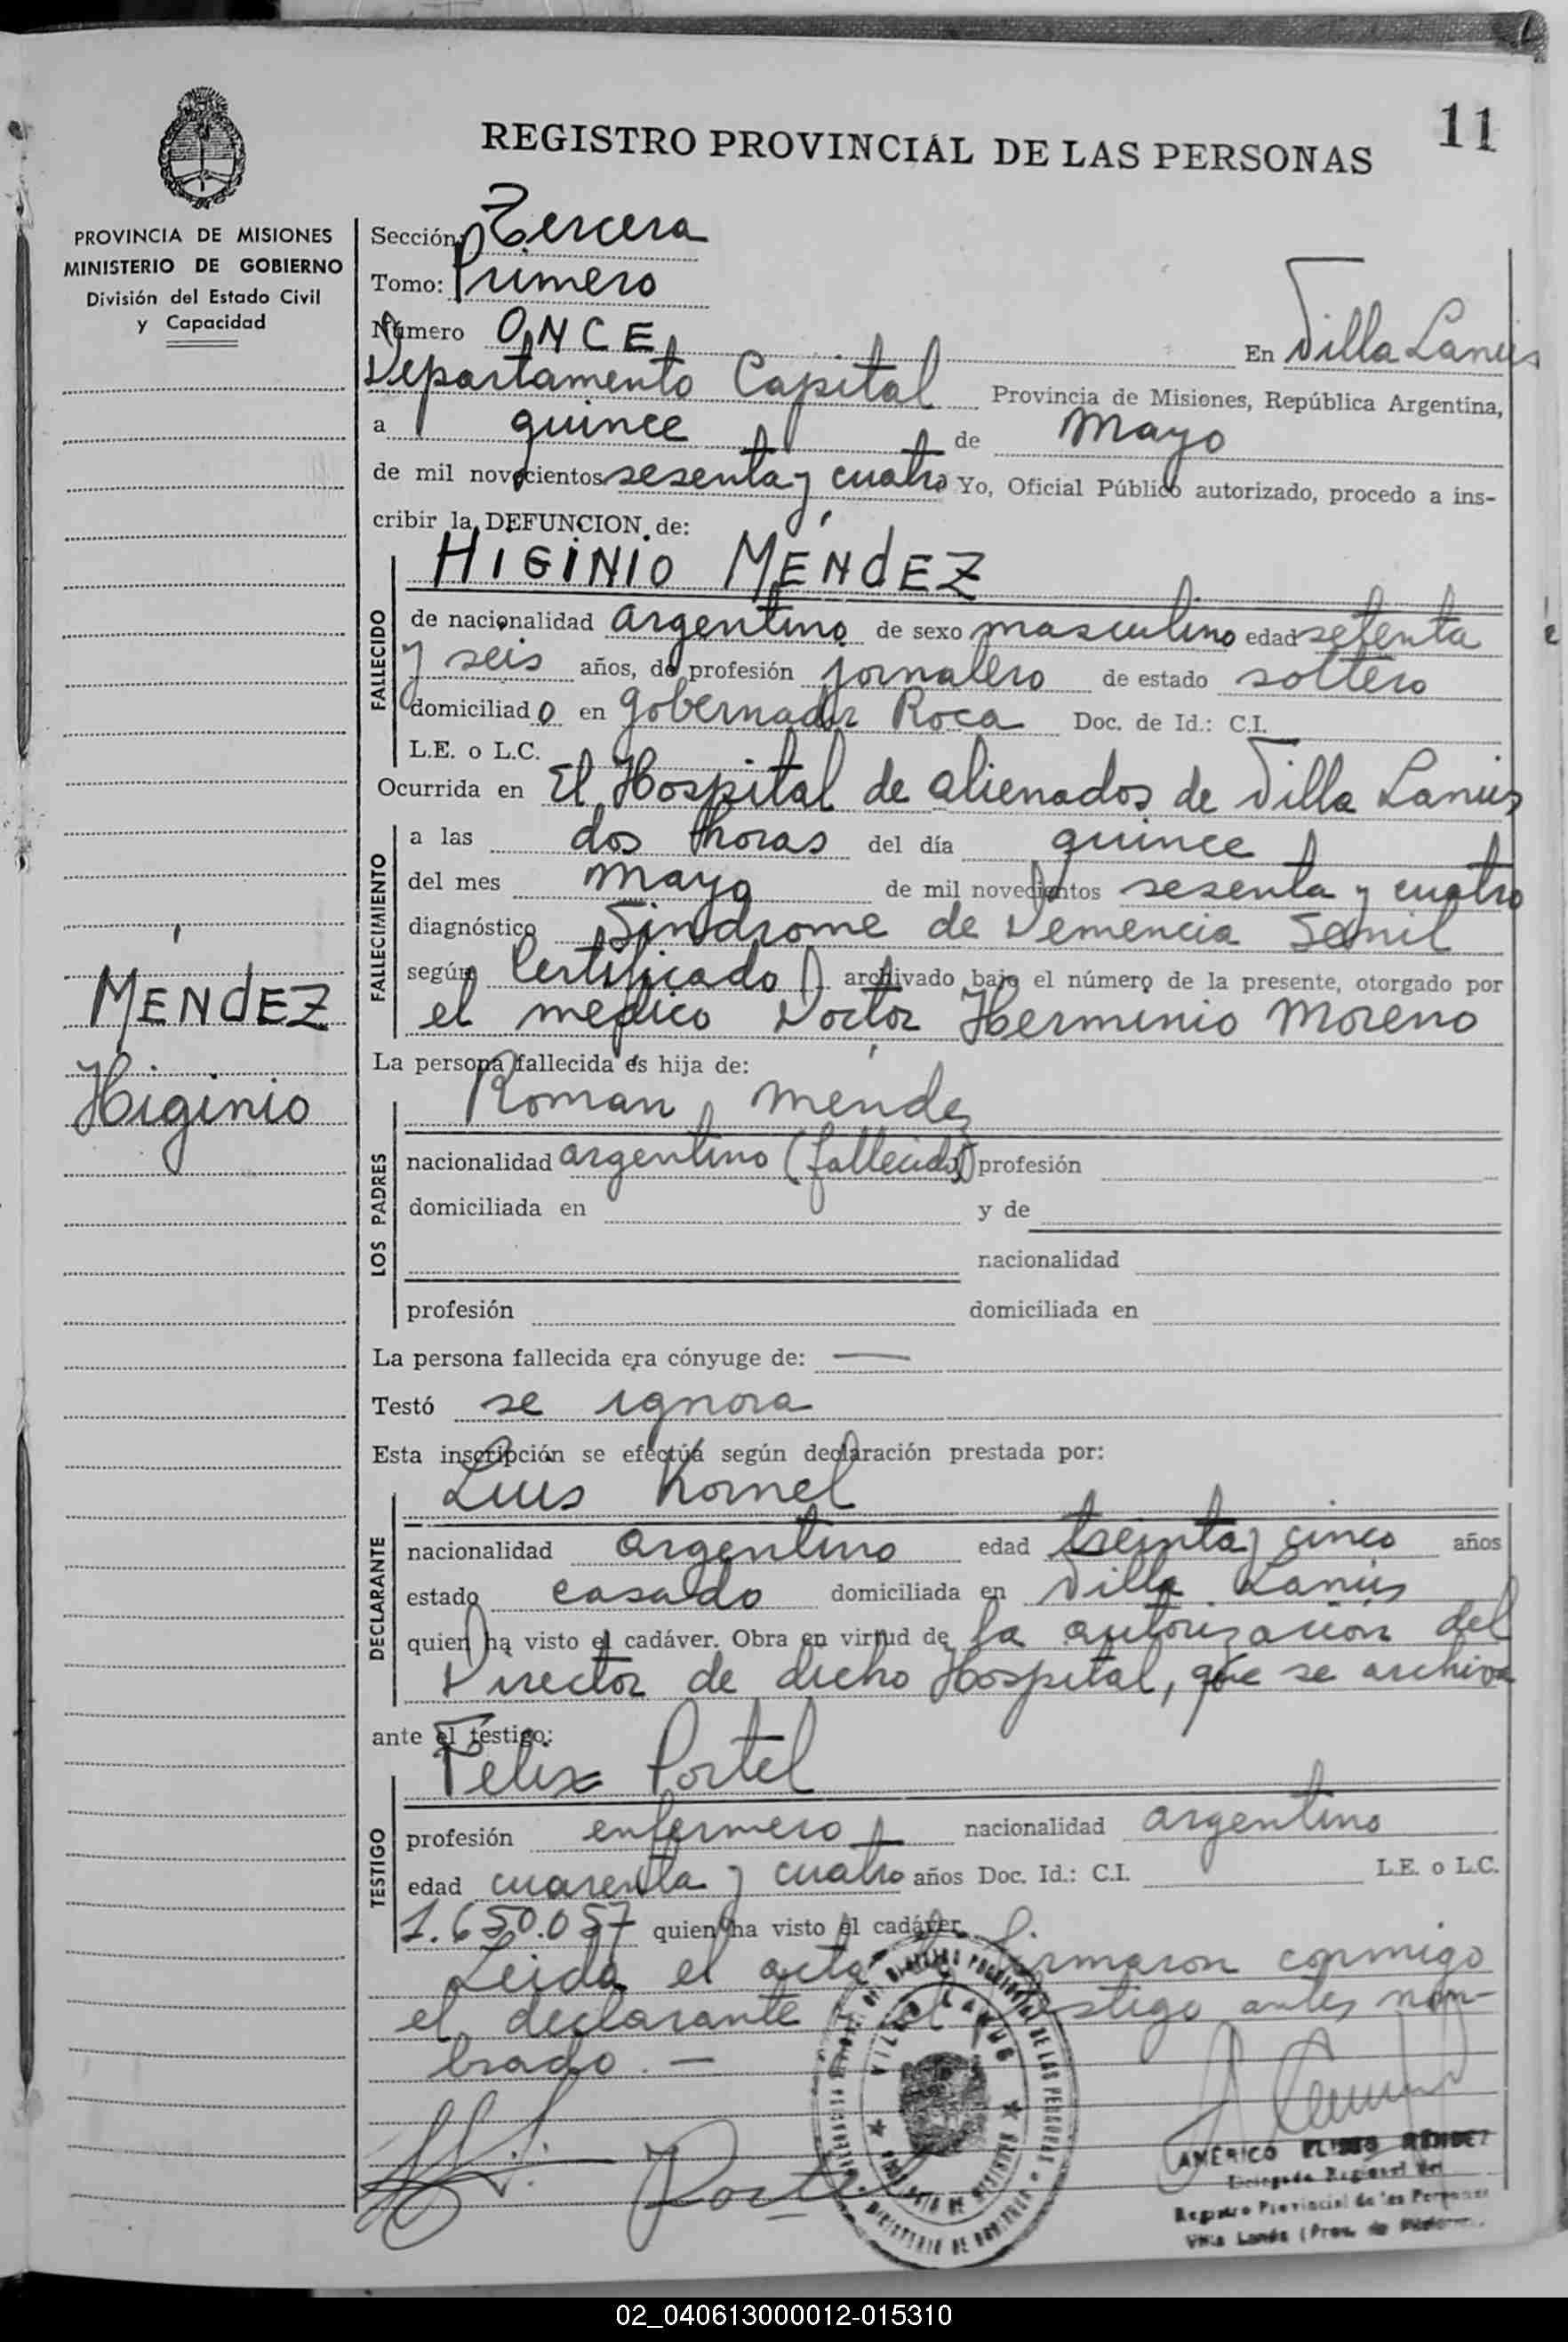 11
REGISTRO PROVINCIAL DE LAS PERSONAS
PROVINCIA DE MISIONES
MINISTERIO DE GOBIERNO
División del Estado Civil
y Capacidad
Sección: Tercera
Tomo: Primero
Número ONCE En Villa Lanús
Departamento Capital Provincia de Misiones, República Argentina,
a quince de Mayo
de mil novecientos sesenta y cuatro Yo, Oficial Público autorizado, procedo a ins-
cribir la DEFUNCION de:
HIGINIO MÉNDEZ
FALLECIDO
de nacionalidad argentino de sexo masculino edad setenta
y seis años, de profesión jornalero de estado soltero
domiciliado en Gobernador Roca Doc. de Id.: C.I.
L.E. o L.C.
Ocurrida en El Hospital de alienados de Villa Lanús
FALLECIMIENTO
a las dos horas del día quince
del mes mayo de mil novecientos sesenta y cuatro
diagnóstico Sindrome de Demencia Senil
según Certificado archivado bajo el número de la presente, otorgado por
el médico Doctor Herminio Moreno
MÉNDEZ
Higinio
La persona fallecida es hija de:
LOS PADRES
Román Mendez
nacionalidad argentino (fallecido) profesión
domiciliada en y de
nacionalidad
profesión domiciliada en
La persona fallecida era cónyuge de: —
Testó se ignora
Esta inscripción se efectúa según declaración prestada por:
DECLARANTE
Luis Kornel
nacionalidad argentino edad treinta y cinco años
estado casado domiciliada en Villa Lanús
quien ha visto el cadáver. Obra en virtud de la autorización del
Director de dicho Hospital, que se archiva
ante el testigo:
TESTIGO
Felix Portel
profesión enfermero nacionalidad argentino
edad cuarenta y cuatro años Doc. Id.: C.I. L.E. o L.C.
1.650.057 quien ha visto el cadáver.
Leida el acta firmaron conmigo
el declarante y el testigo antes nom-
brado. —
VILLA LANUS
Portel
AMÉRICO ELISEO MÉNDEZ
Delegado Regional del
Registro Provincial de las Personas
Villa Lanús (Prov. de Misiones)
02_040613000012-015310